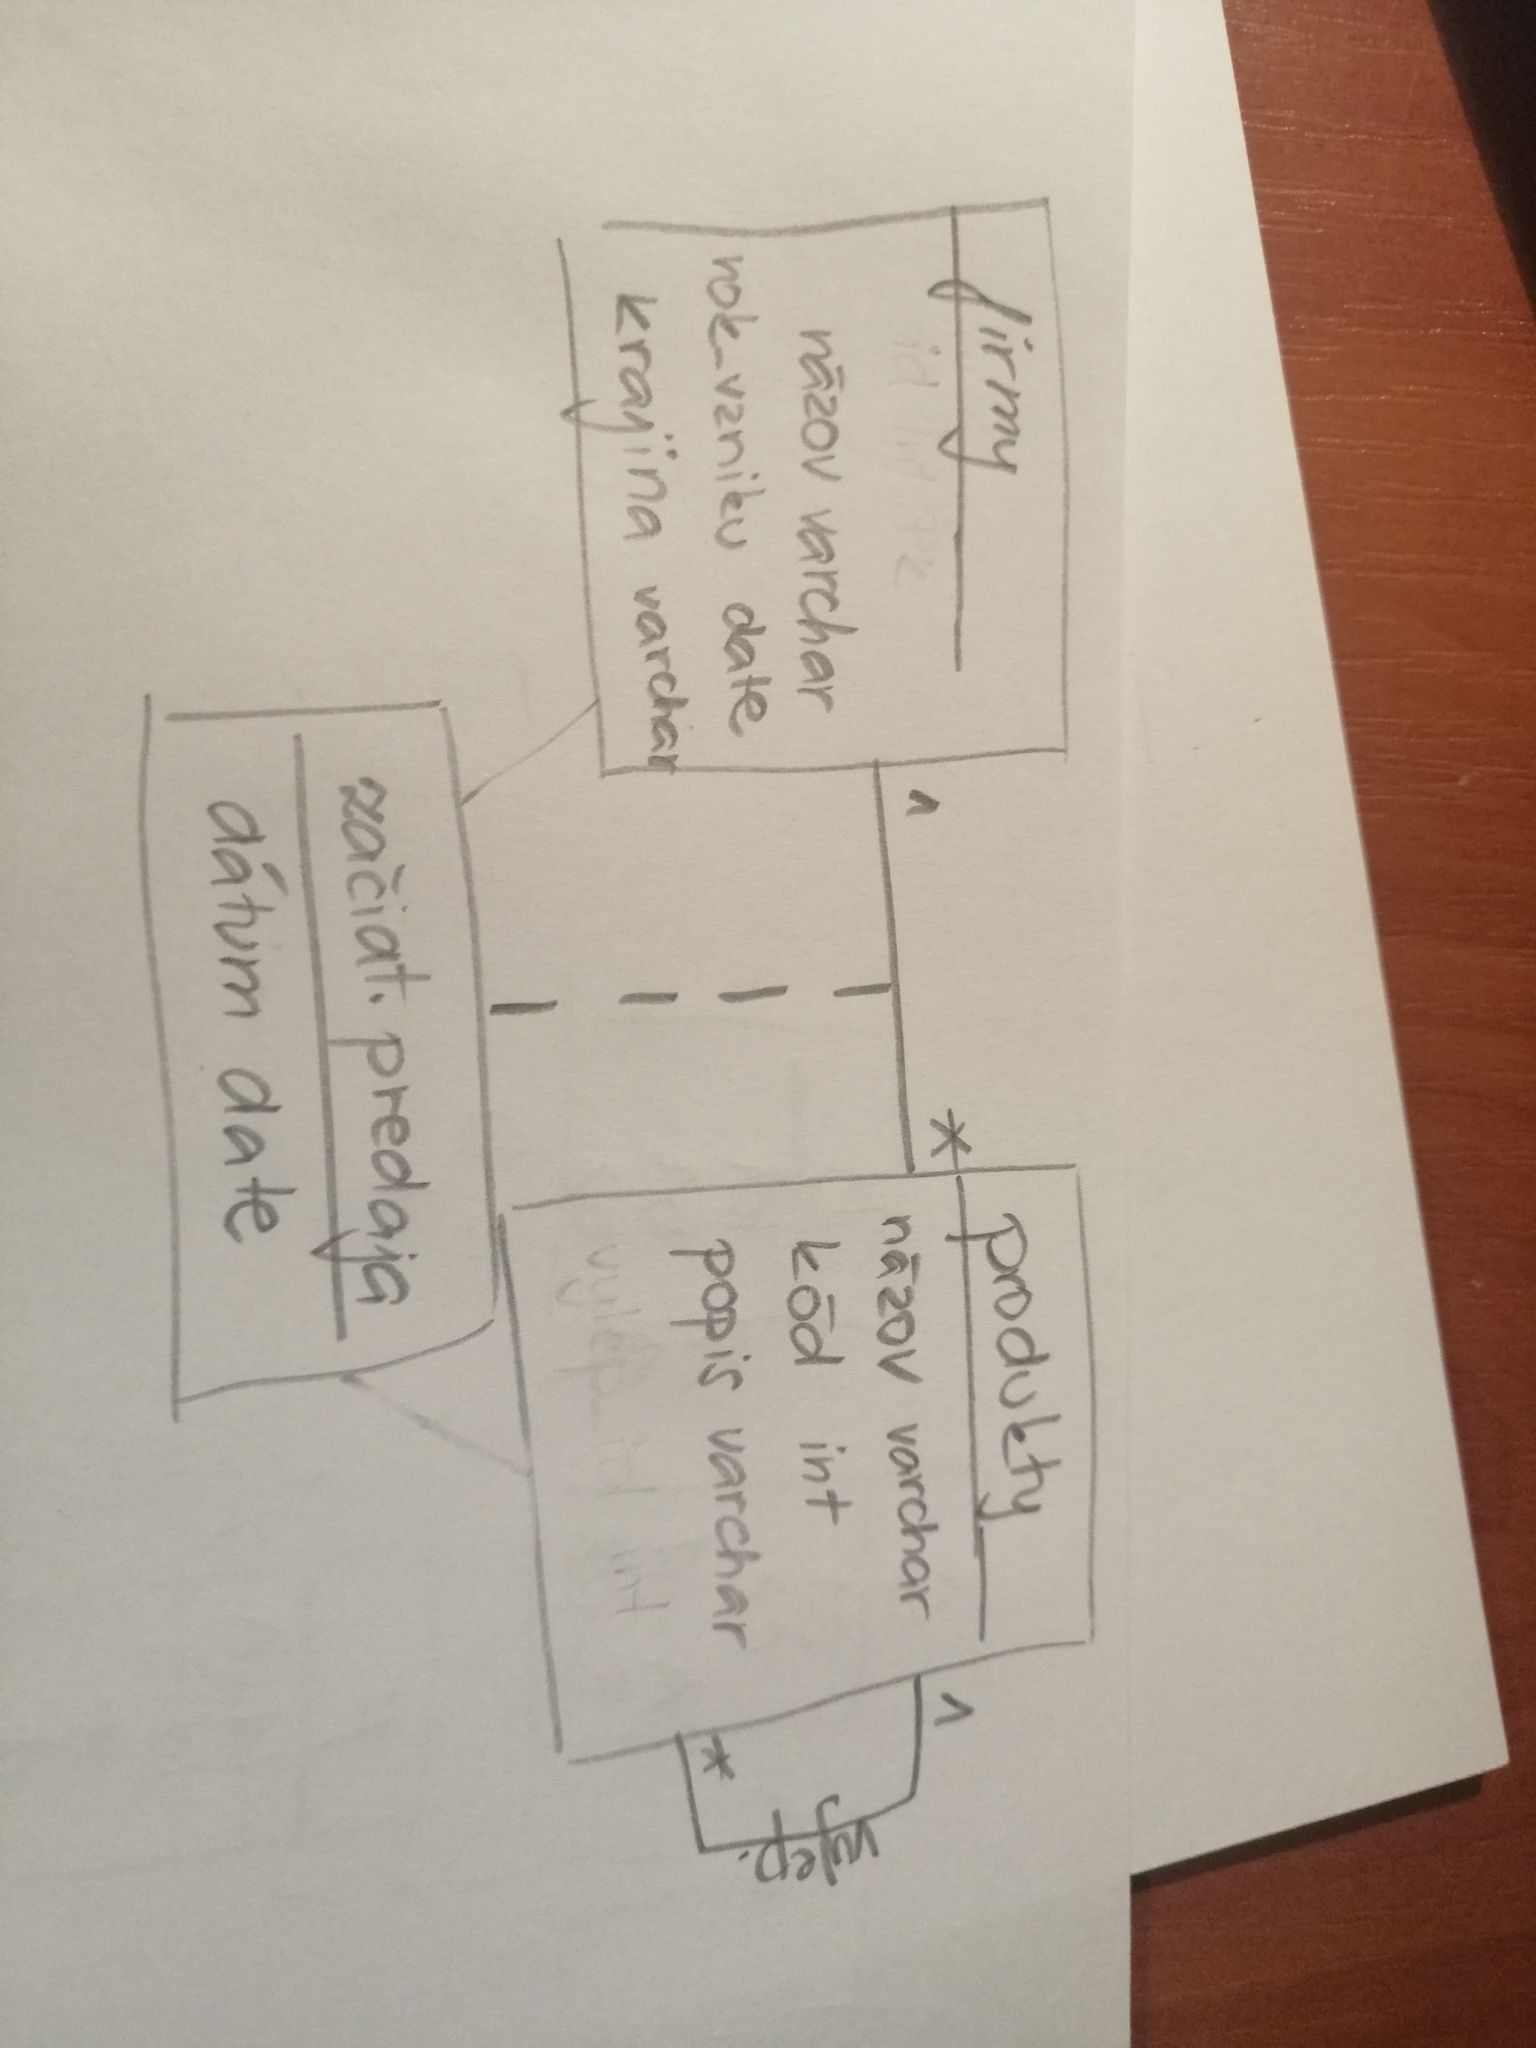 firmy
názov varchar
rok_vzniku date
krajina varchar
1
*
produkty
názov varchar
kód int
popis varchar
vylep_id int
1
*
začiat. predaja
dátum date